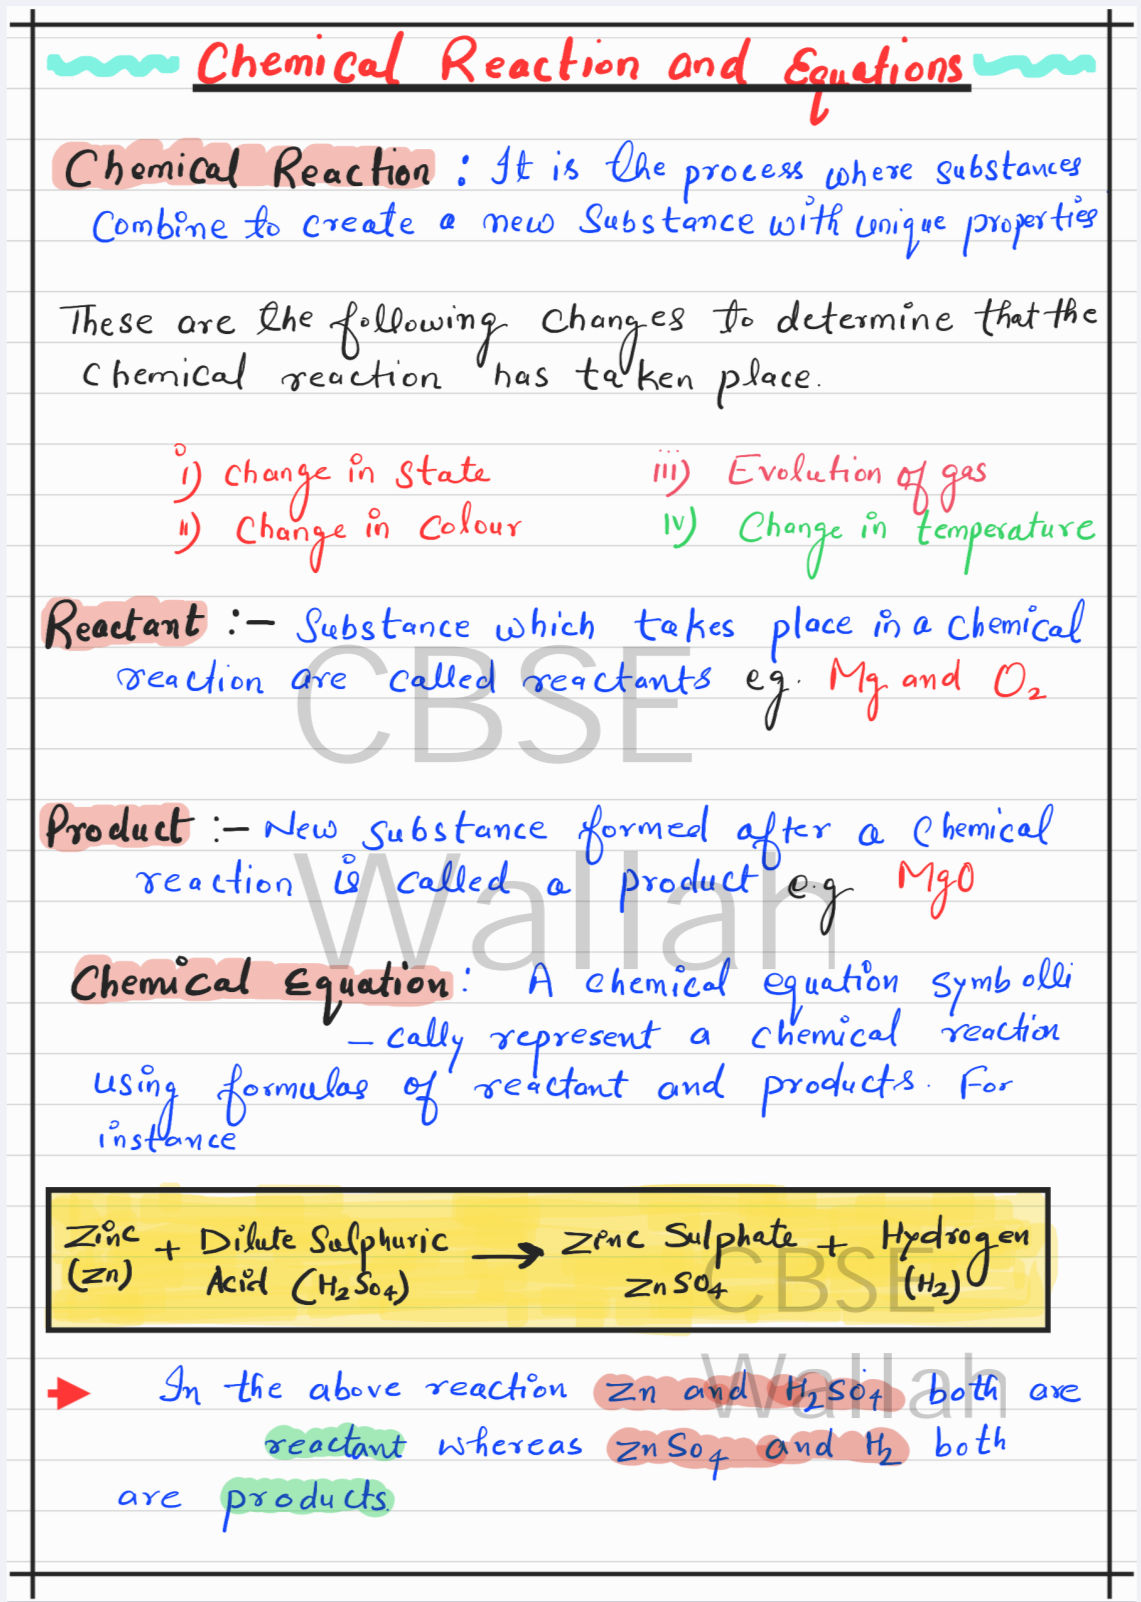 Chemical Reaction and Equations
Chemical Reaction : It is the process where substances
Combine to create a new Substance with unique properties
These are the following changes to determine that the
Chemical reaction has taken place.
i) Change in State
iii) Evolution of gas
ii) Change in Colour
iv) Change in temperature
Reactant :- Substance which takes place in a Chemical
reaction are called reactants eg. Mg and O₂
CBSE
Product :- New substance formed after a Chemical
reaction is called a product e.g MgO
Wallah
Chemical Equation : A chemical equation Symbolli
- cally represent a chemical reaction
using formulas of reactant and products. For
instance
Zinc + Dilute Sulphuric → Zinc Sulphate + Hydrogen
(Zn) Acid (H₂So₄) ZnSO₄ (H₂)
CBSE
Wallah
In the above reaction Zn and H₂SO₄ both are
reactant whereas ZnSo₄ and H₂ both
are products.